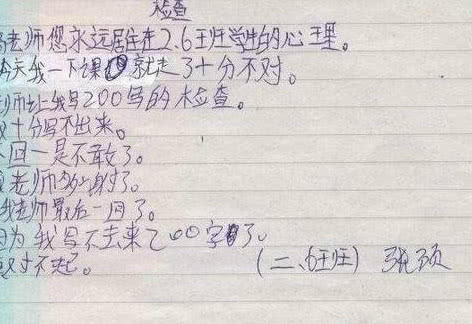 检查
老师您永远居住在2.6班学生的心理。
今天我一下课就走了十分不对。
师让我写200写的检查。
十分写不出来。
回一是不敢了。
老师多谢了。
老师最后一回了。
因为我写不去来200字了。
对不起。
(二、6班) 张